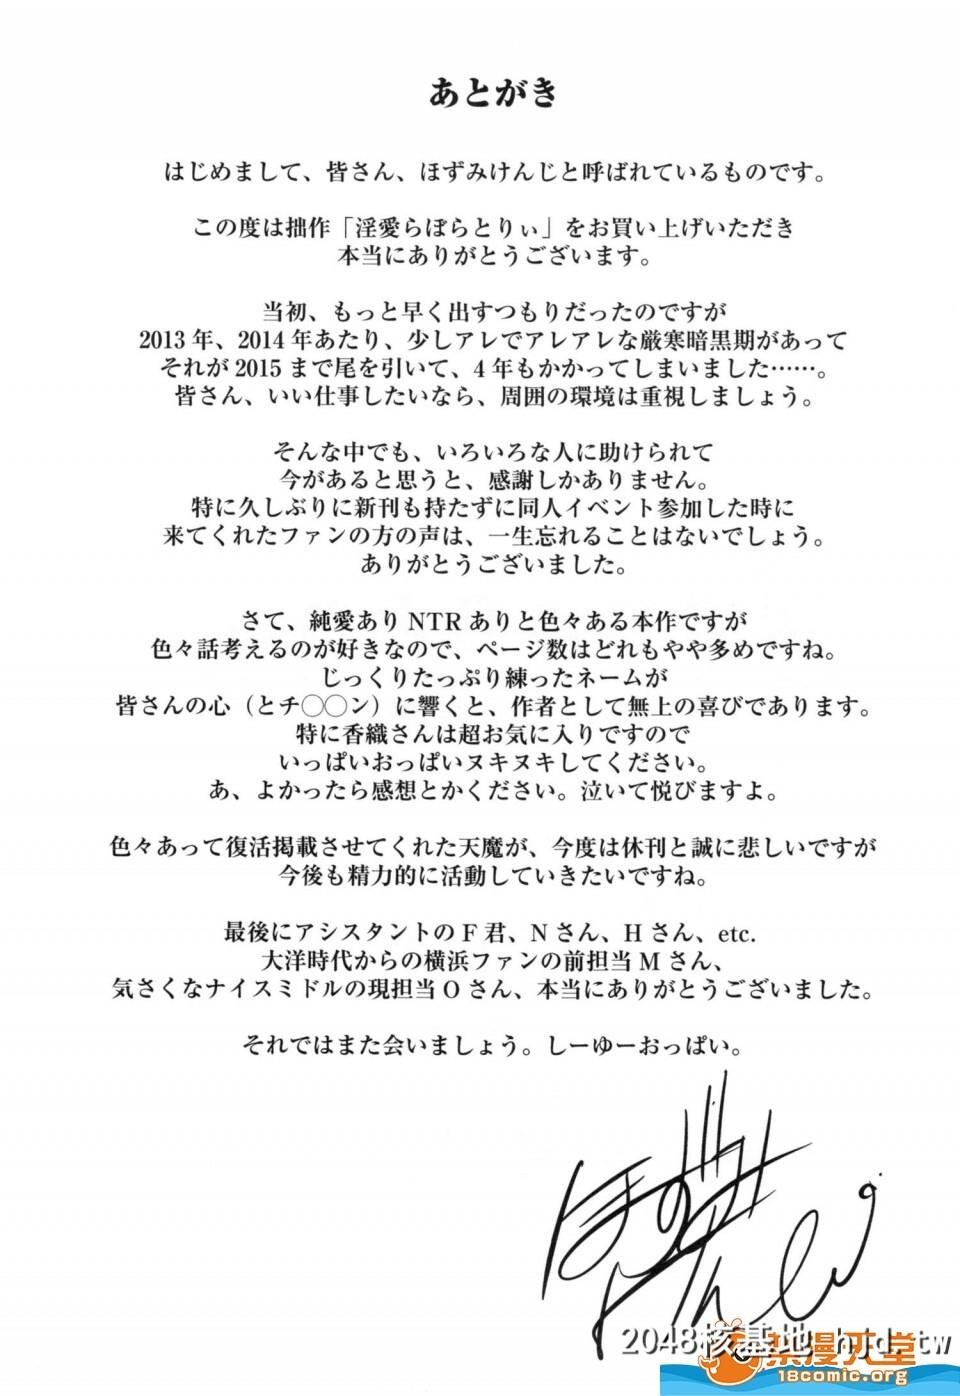 あとがき
はじめまして、皆さん、ほずみけんじと呼ばれているものです。
この度は拙作「淫愛らぼらとりぃ」をお買い上げいただき
本当にありがとうございます。
当初、もっと早く出すつもりだったのですが
2013年、2014年あたり、少しアレでアレアレな厳寒暗黒期があって
それが2015まで尾を引いて、4年もかかってしまいました……。
皆さん、いい仕事したいなら、周囲の環境は重視しましょう。
そんな中でも、いろいろな人に助けられて
今があると思うと、感謝しかありません。
特に久しぶりに新刊も持たずに同人イベント参加した時に
来てくれたファンの方の声は、一生忘れることはないでしょう。
ありがとうございました。
さて、純愛ありNTRありと色々ある本作ですが
色々話考えるのが好きなので、ページ数はどれもやや多めですね。
じっくりたっぷり練ったネームが
皆さんの心（とチ◯◯ン）に響くと、作者として無上の喜びであります。
特に香織さんは超お気に入りですので
いっぱいおっぱいヌキヌキしてください。
あ、よかったら感想とかください。泣いて悦びますよ。
色々あって復活掲載させてくれた天魔が、今度は休刊と誠に悲しいですが
今後も精力的に活動していきたいですね。
最後にアシスタントのF君、Nさん、Hさん、etc.
大洋時代からの横浜ファンの前担当Mさん、
気さくなナイスミドルの現担当Oさん、本当にありがとうございました。
それではまた会いましょう。しーゆーおっぱい。
ほずみ
けんじ
2048核基地
.tw
禁漫天堂
18comic.org